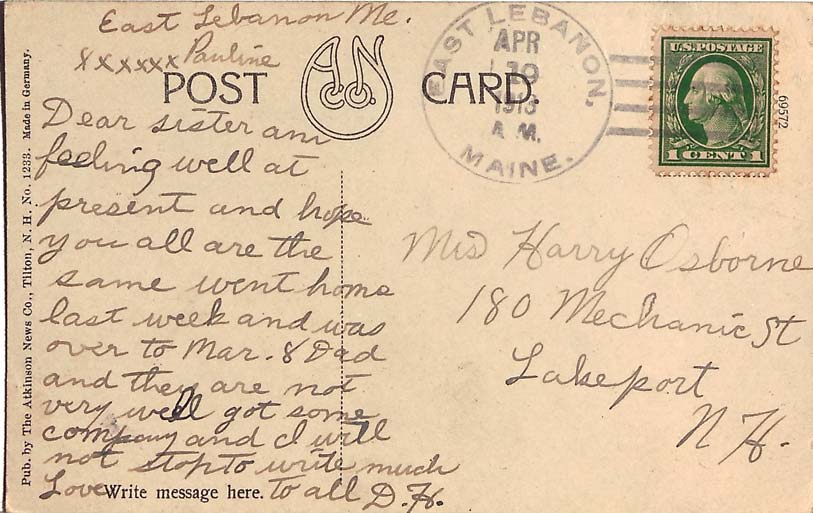 East Lebanon Me.
xxxxxx Pauline
POST CARD.
A.N.Co.
EAST LEBANON,
APR
19
1913
A.M.
MAINE.
U.S. POSTAGE
1 CENT 1
69572
Pub. by The Atkinson News Co., Tilton, N. H. No. 1233. Made in Germany.
Dear sister am
feeling well at
present and hope
you all are the
same went home
last week and was
over to Mar. & Dad
and they are not
very well got some
company and I will
not stop to write much
Love to all D.H.
Write message here.
Mrs Harry Osborne
180 Mechanic St
Lakeport
N H.